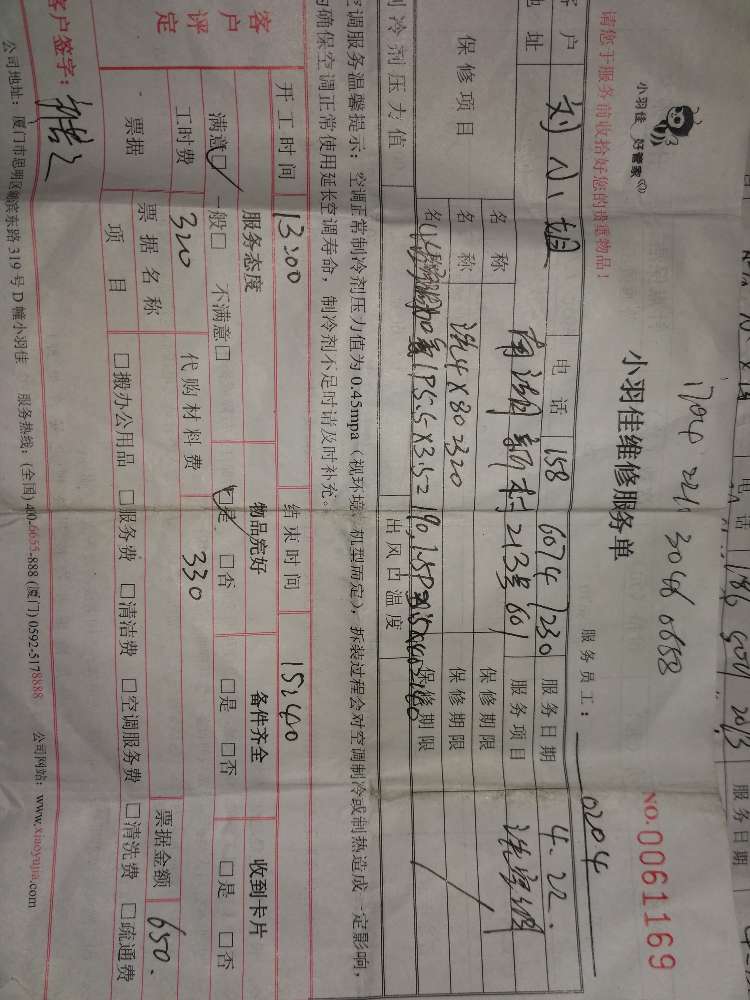 小羽佳 好管家
1704 2241 3048 0658
小羽佳维修服务单
NO.0061169
请您于服务前收拾好您的贵重物品！
服务员工： 0204
客户 刘小姐 电话 158 6074 7230 服务日期 4.22.
地址 南湖新村213号601 服务项目 洗空调
保修项目
名称 保修期限
名称 洗4×80=320 保修期限
名称 保修期限
制冷剂压力值 出风口温度
空调服务温馨提示：空调正常制冷剂压力值为0.45mpa（视环境、机型而定），拆装过程会对空调制冷或制热造成一定影响，
为确保空调正常使用延长空调寿命，制冷剂不足时请及时补充。
开工时间 13:00 结束时间 15:40
客户评定
服务态度 物品完好 备件齐全 收到卡片
满意□ 一般□ 不满意□ □是 □否 □是 □否 □是 □否
工时费 320 代购材料费 330
票据 票据名称 票据金额 650.
项目 □搬办公用品 □服务费 □清洁费 □空调服务费 □清洗费 □疏通费
客户签字：
公司地址：厦门市思明区湖滨东路319号D幢小羽佳 服务热线：(全国) 400-6655-888 (厦门) 0592-5178888 公司网站：www.xiaoyujia.com